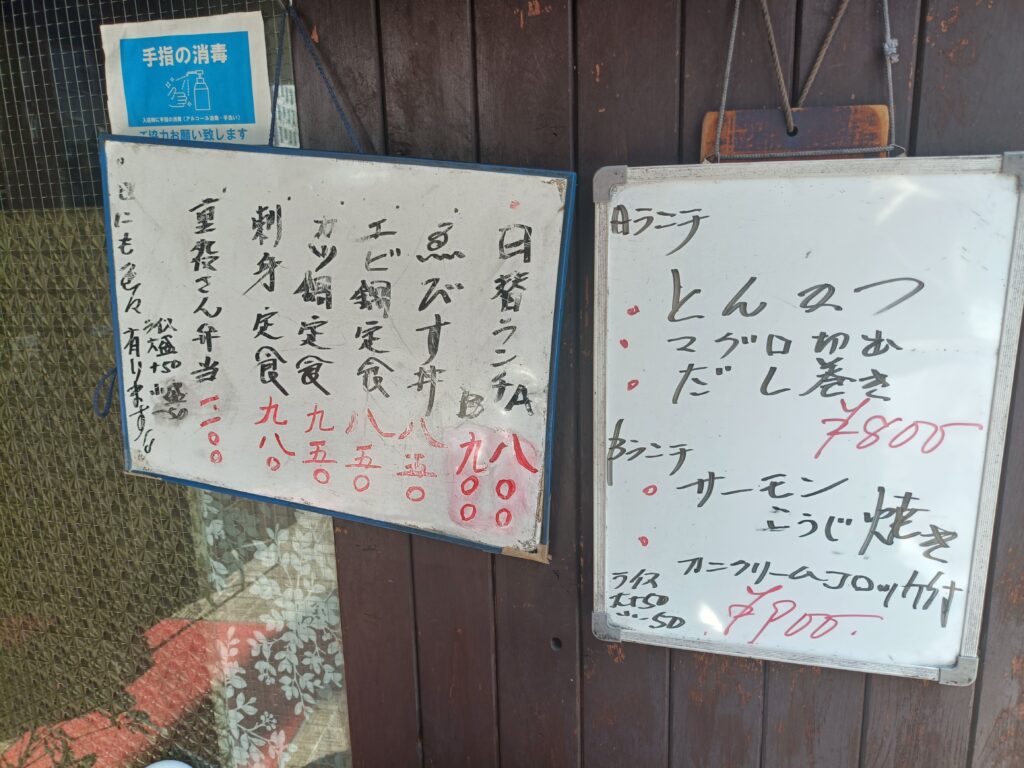 手指の消毒
入店時に手指の消毒(アルコール消毒・手洗い)
ご協力お願い致します
日替ランチA 八〇〇
B 九〇〇
ゑびす丼 八五〇
エビ鍋定食 八五〇
カツ鍋定食 九五〇
刺身定食 九八〇
重役さん弁当 一二〇〇
他にも色々有ります
ライス
大盛+50
Aランチ
とんかつ
マグロ切出
だし巻き
¥800
Bランチ
サーモン
こうじ焼き
カニクリームコロッケ付
¥900
ライス
大+50
小-50